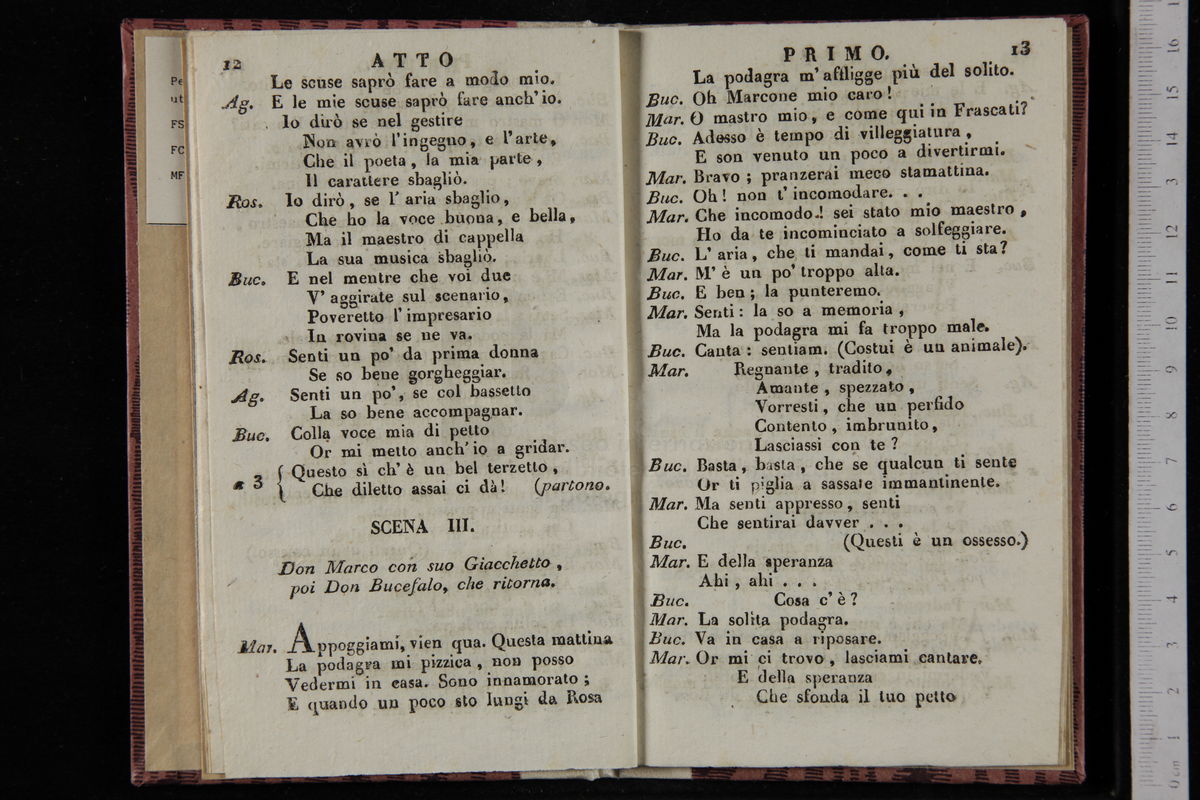 Pe
ut
FS
FC
MF
12 ATTO
Le scuse saprò fare a modo mio.
Ag. E le mie scuse saprò fare anch'io.
Io dirò se nel gestire
Non avrò l'ingegno, e l'arte,
Che il poeta, la mia parte,
Il carattere sbagliò.
Ros. Io dirò, se l'aria sbaglio,
Che ho la voce buona, e bella,
Ma il maestro di cappella
La sua musica sbagliò.
Buc. E nel mentre che voi due
V'aggirate sul scenario,
Poveretto l'impresario
In rovina se ne va.
Ros. Senti un po' da prima donna
Se so bene gorgheggiar.
Ag. Senti un po', se col bassetto
La so bene accompagnar.
Buc. Colla voce mia di petto
Or mi metto anch'io a gridar.
a 3 { Questo sì ch'è un bel terzetto,
Che diletto assai ci dà! (partono.
SCENA III.
Don Marco con suo Giacchetto,
poi Don Bucefalo, che ritorna.
Mar. Appoggiami, vien qua. Questa mattina
La podagra mi pizzica, non posso
Vedermi in casa. Sono innamorato;
E quando un poco sto lungi da Rosa
PRIMO. 13
La podagra m'affligge più del solito.
Buc. Oh Marcone mio caro!
Mar. O mastro mio, e come qui in Frascati?
Buc. Adesso è tempo di villeggiatura,
E son venuto un poco a divertirmi.
Mar. Bravo; pranzerai meco stamattina.
Buc. Oh! non t'incomodare. . .
Mar. Che incomodo! sei stato mio maestro,
Ho da te incominciato a solfeggiare.
Buc. L'aria, che ti mandai, come ti sta?
Mar. M'è un po' troppo alta.
Buc. E ben; la punteremo.
Mar. Senti: la so a memoria,
Ma la podagra mi fa troppo male.
Buc. Canta: sentiam. (Costui è un animale).
Mar. Regnante, tradito,
Amante, spezzato,
Vorresti, che un perfido
Contento, imbrunito,
Lasciassi con te?
Buc. Basta, basta, che se qualcun ti sente
Or ti piglia a sassate immantinente.
Mar. Ma senti appresso, senti
Che sentirai davver . . .
Buc. (Questi è un ossesso.)
Mar. E della speranza
Ahi, ahi . . .
Buc. Cosa c'è?
Mar. La solita podagra.
Buc. Va in casa a riposare.
Mar. Or mi ci trovo, lasciami cantare.
E della speranza
Che sfonda il tuo petto
16
15
14
13
12
11
10
9
8
7
6
5
4
3
2
1
0 cm